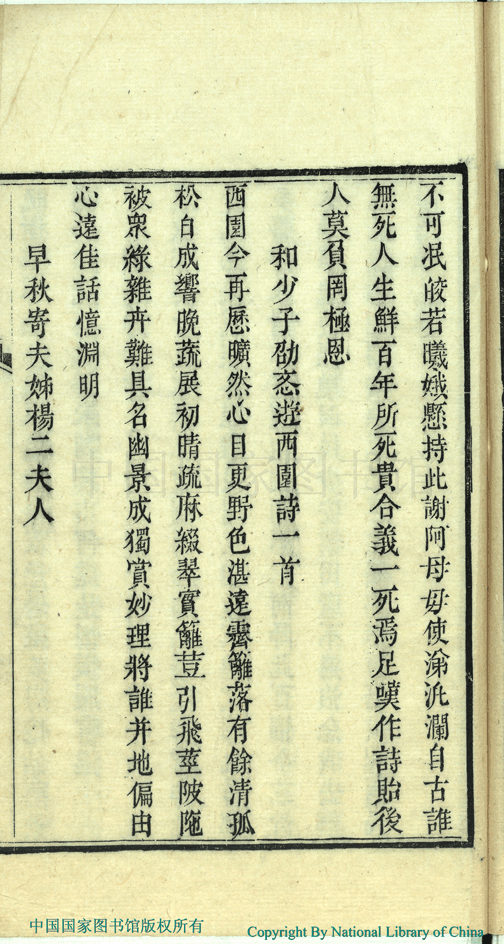 不可泯皎若曦娥懸持此謝阿母毋使淚汍瀾自古誰
無死人生鮮百年所死貴合義一死焉足嘆作詩貽後
人莫負罔極恩
和少子劭忞遊西園詩一首
西園今再歷曠然心目更野色湛遠霽籬落有餘清孤
松自成響晚蔬展初晴疏麻綴翠實籬荳引飛莖陂陁
被衆綠雜卉難具名幽景成獨賞妙理將誰并地偏由
心遠佳話憶淵明
早秋寄夫姊楊二夫人
中国国家图书馆
中国国家图书馆版权所有
Copyright By National Library of China